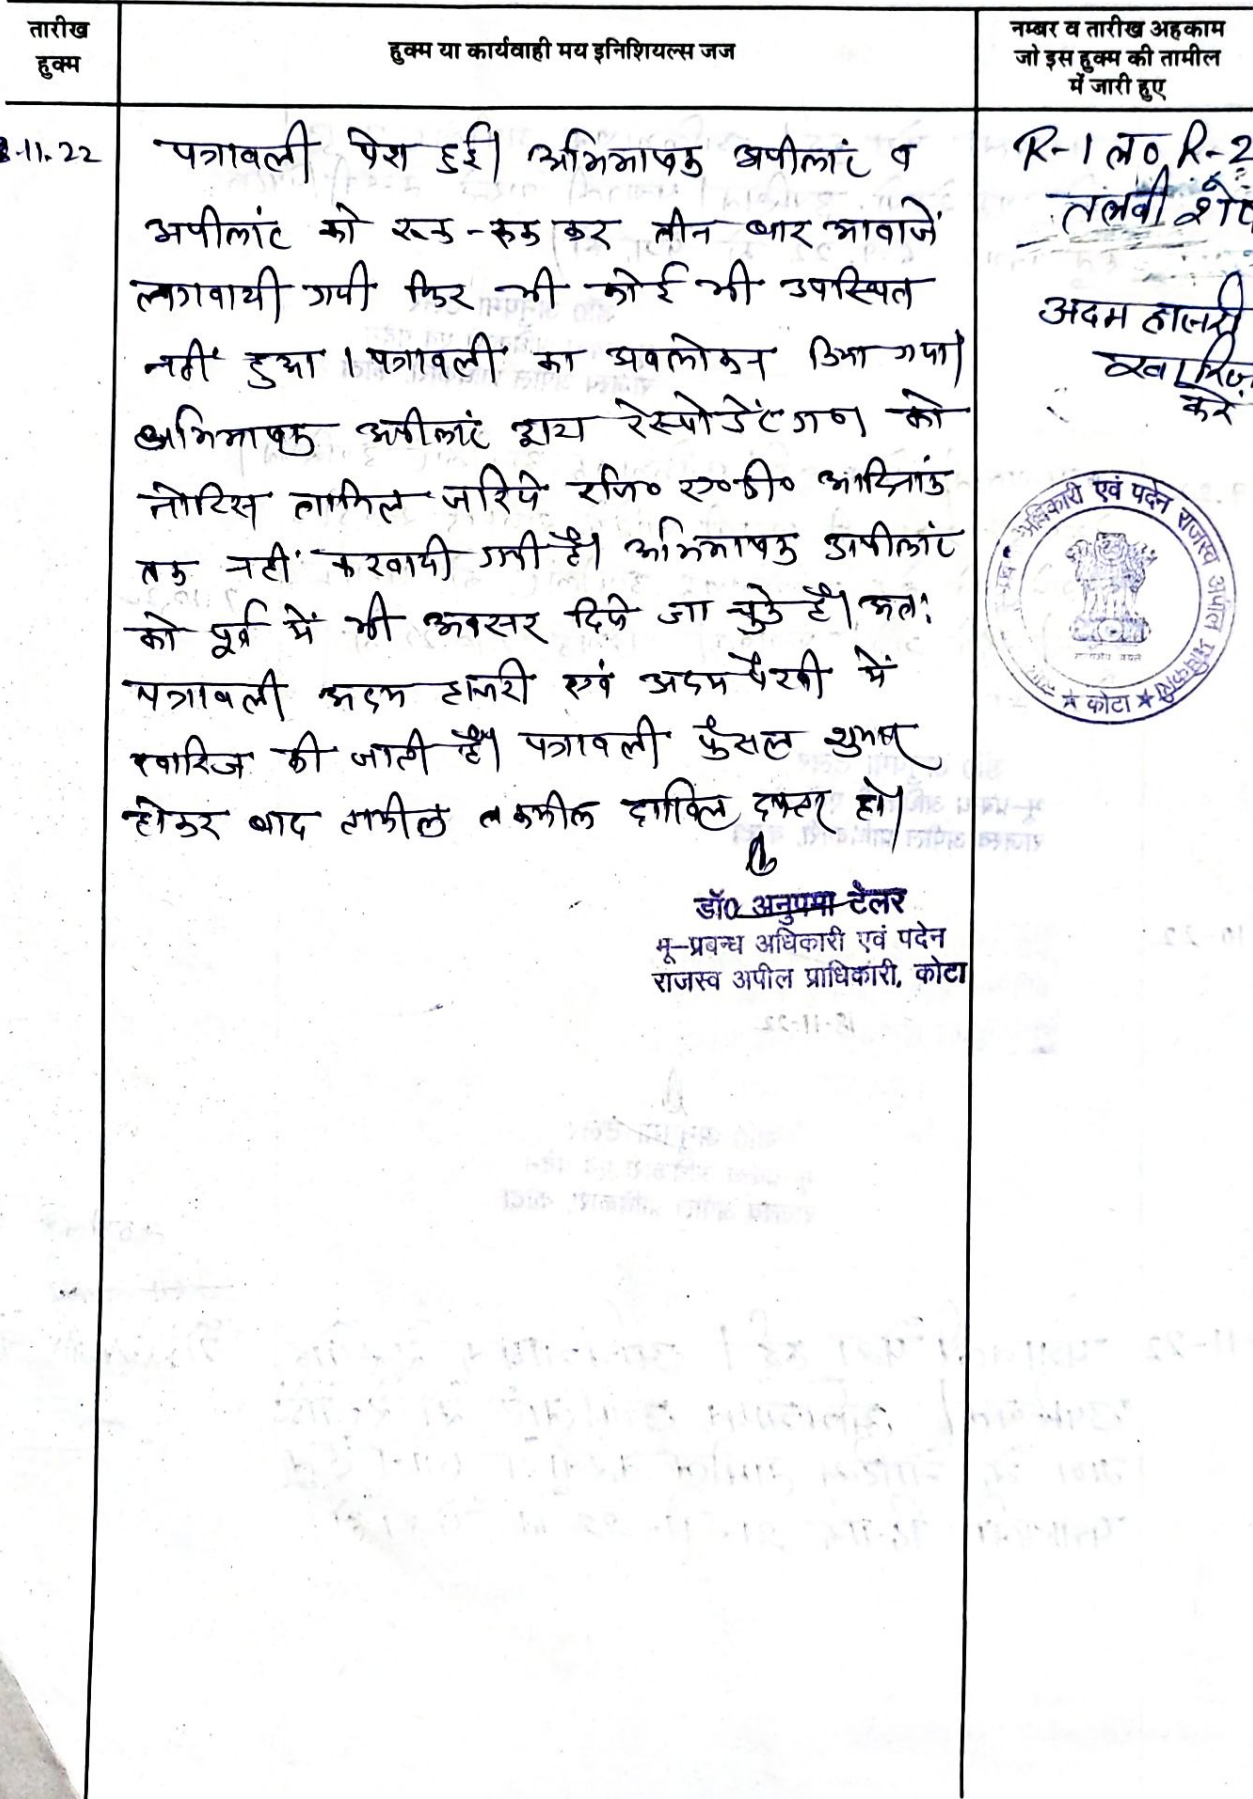 तारीख
हुक्म
हुक्म या कार्यवाही मय इनिशियल्स जज
नम्बर व तारीख अहकाम
जो इस हुक्म की तामील
में जारी हुए
-11-22
पत्रावली पेश हुई। अभिभाषक अपीलांट व
अपीलांट को रूक-रूक कर तीन बार आवाजें
लगवायी गयी फिर भी कोई भी उपस्थित
नहीं हुआ। पत्रावली का अवलोकन किया गया।
अभिभाषक अपीलांट द्वारा रेस्पोडेंटगण को
नोटिस तामिल जरिये रजि० ए०डी० आदिनांक
तक नहीं करवायी गयी है। अभिभाषक अपीलांट
को पूर्व में भी अवसर दिये जा चुके है। अतः
पत्रावली अदम हाजरी एवं अदम पैरवी में
खारिज की जाती है। पत्रावली फैसल शुमार
होकर बाद तामील तकमील दाखिल दफ्तर हो।
डॉ० अनुपमा टेलर
भू-प्रबन्ध अधिकारी एवं पदेन
राजस्व अपील प्राधिकारी, कोटा
R-1 ल० R-2
तलबी शेष
अदम हाजरी
खारिज
करें
अधिकारी एवं पदेन राजस्व अपील प्राधिकारी
★ कोटा ★